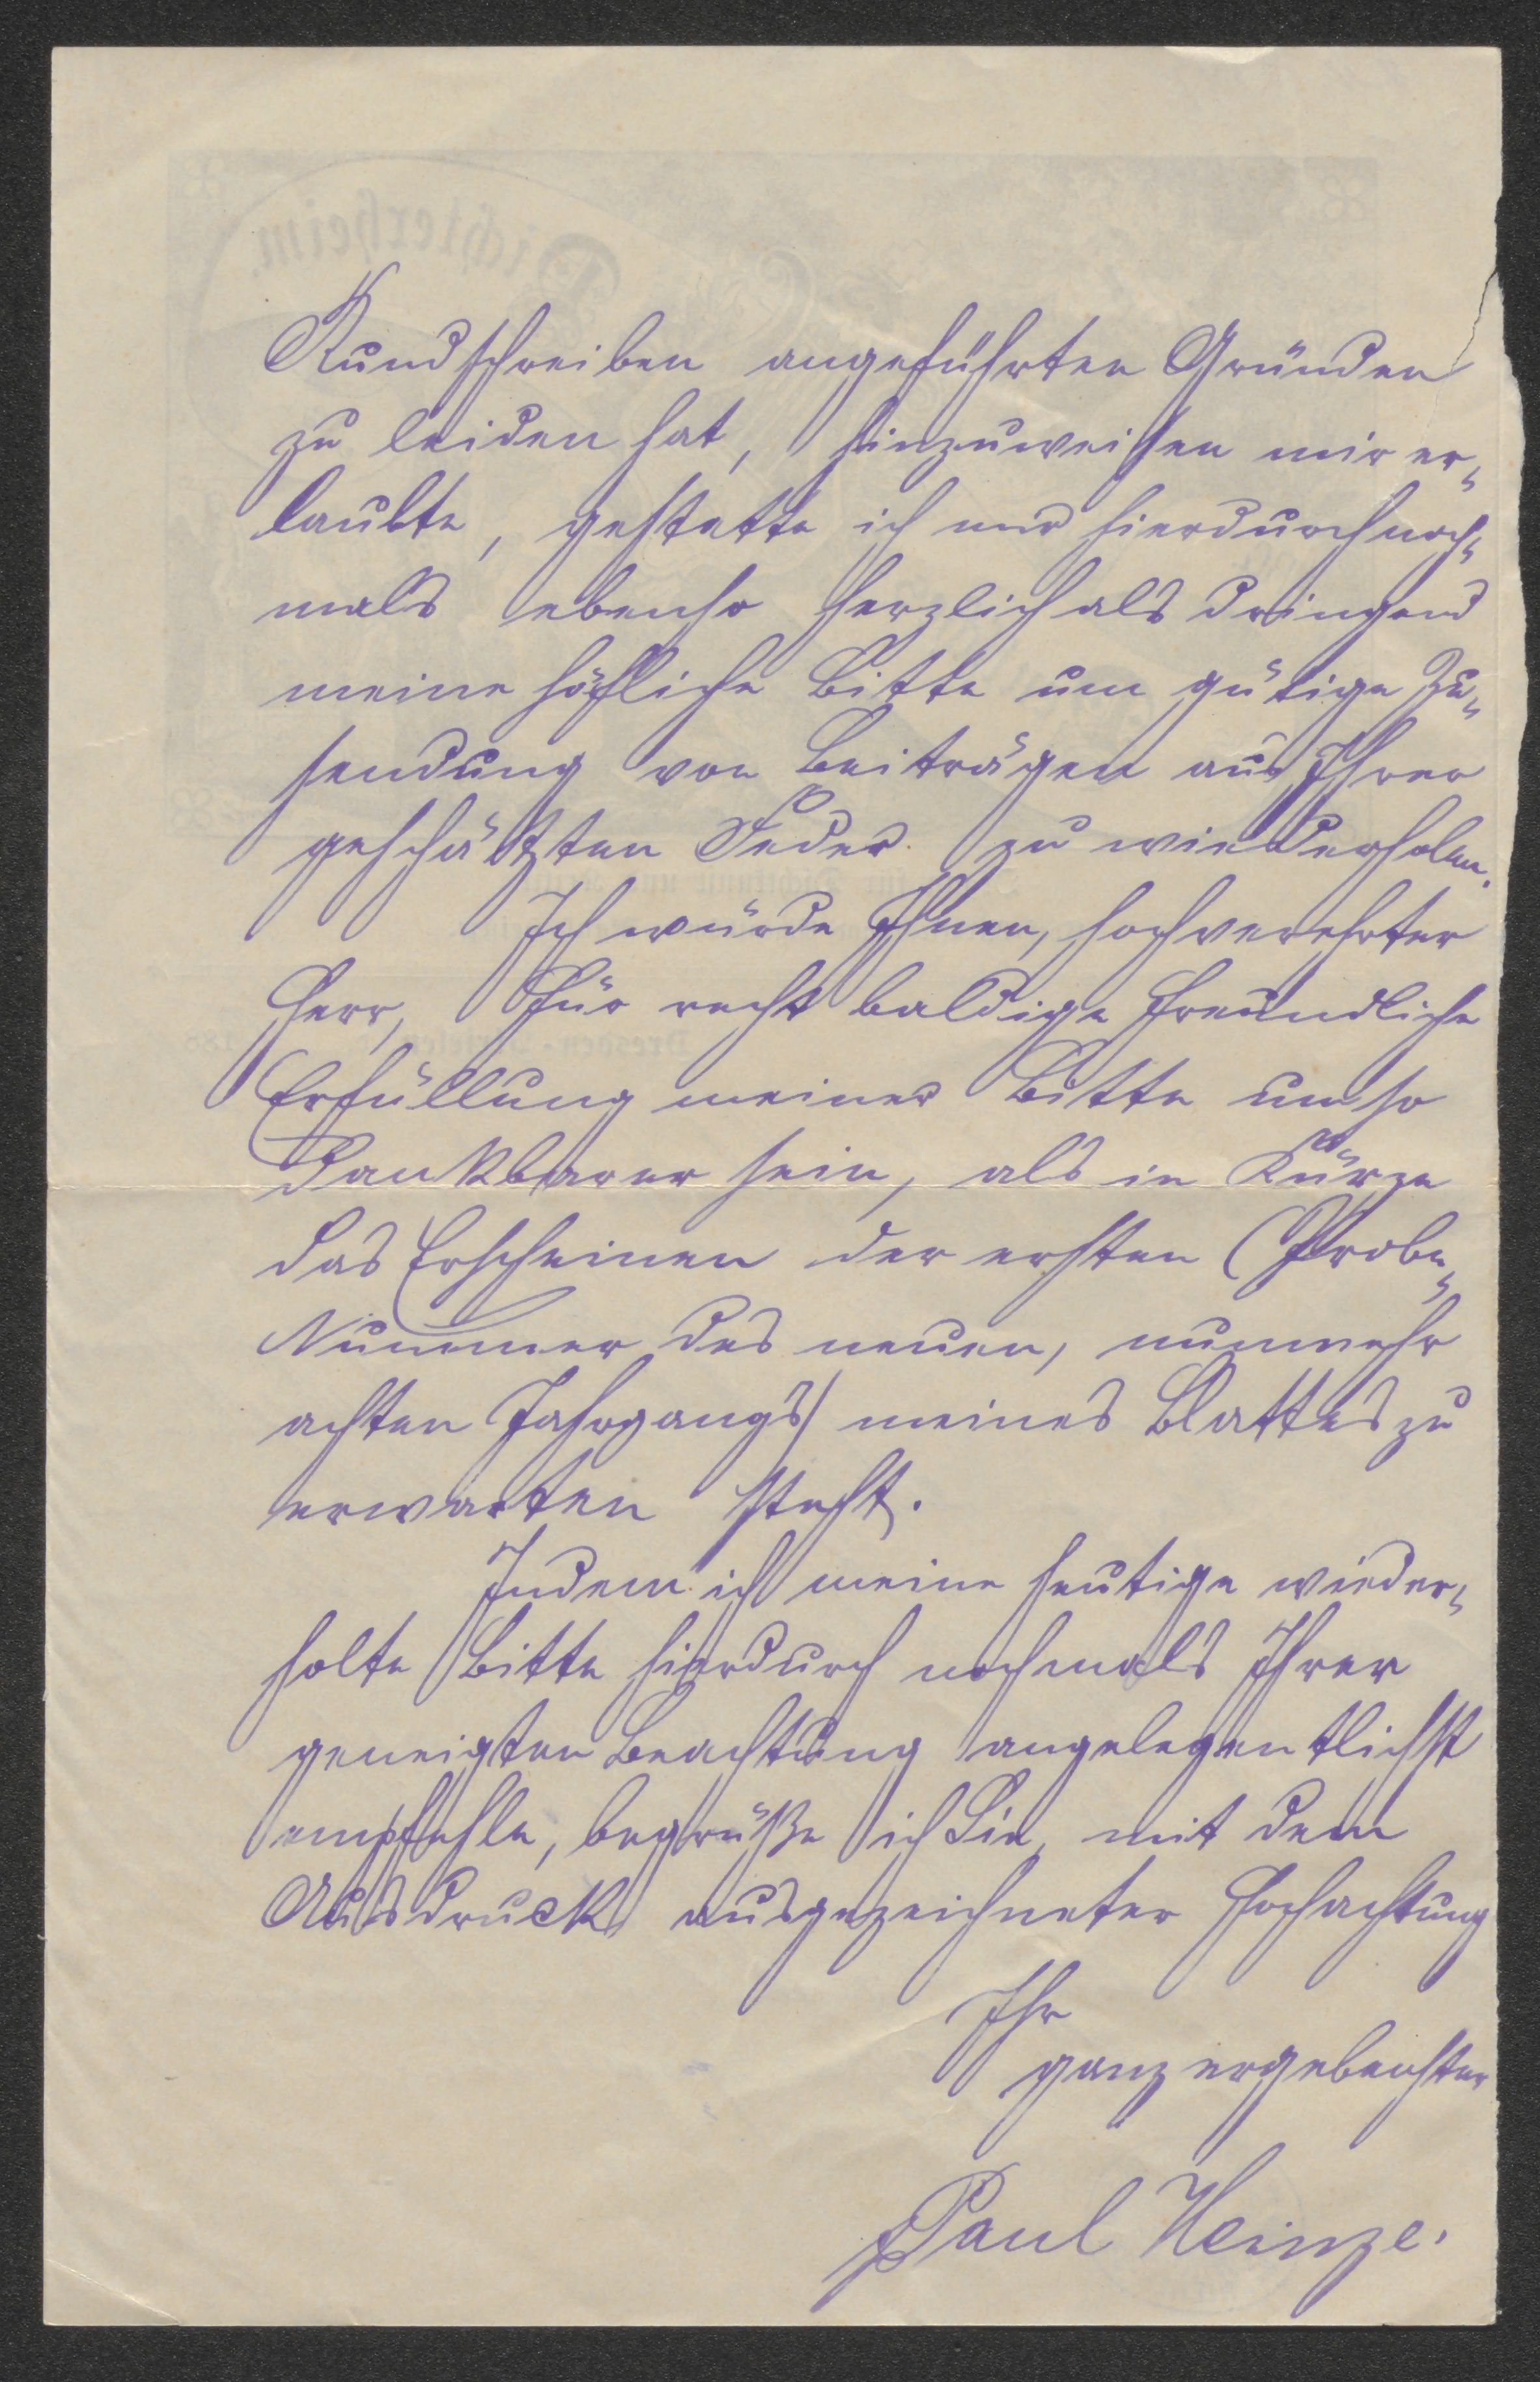 Rundschreiben angeführten Gründen
zu leiden hat, hinzuweisen mir er-
laubte, gestatte ich mir hierdurch noch-
mals ebenso herzlich als dringend
meine höfliche Bitte um gütige Zu-
sendung von Beiträgen aus Ihrer
geschätzten Feder zu wiederholen.
Ich würde Ihnen, hochverehrter
Herr, für recht baldige freundliche
Erfüllung meiner Bitte umso
dankbarer sein, als in Kürze
das Erscheinen der ersten (Probe-
Nummer des neuen, nunmehr
achten Jahrgangs) meines Blattes zu
erwarten steht.
Indem ich meine heutige wieder-
holte Bitte hierdurch nochmals Ihrer
geneigten Beachtung angelegentlichst
empfehle, begrüße ich Sie mit dem
Ausdruck ausgezeichneter Hochachtung
Ihr
ganz ergebenster
Paul Heinze.